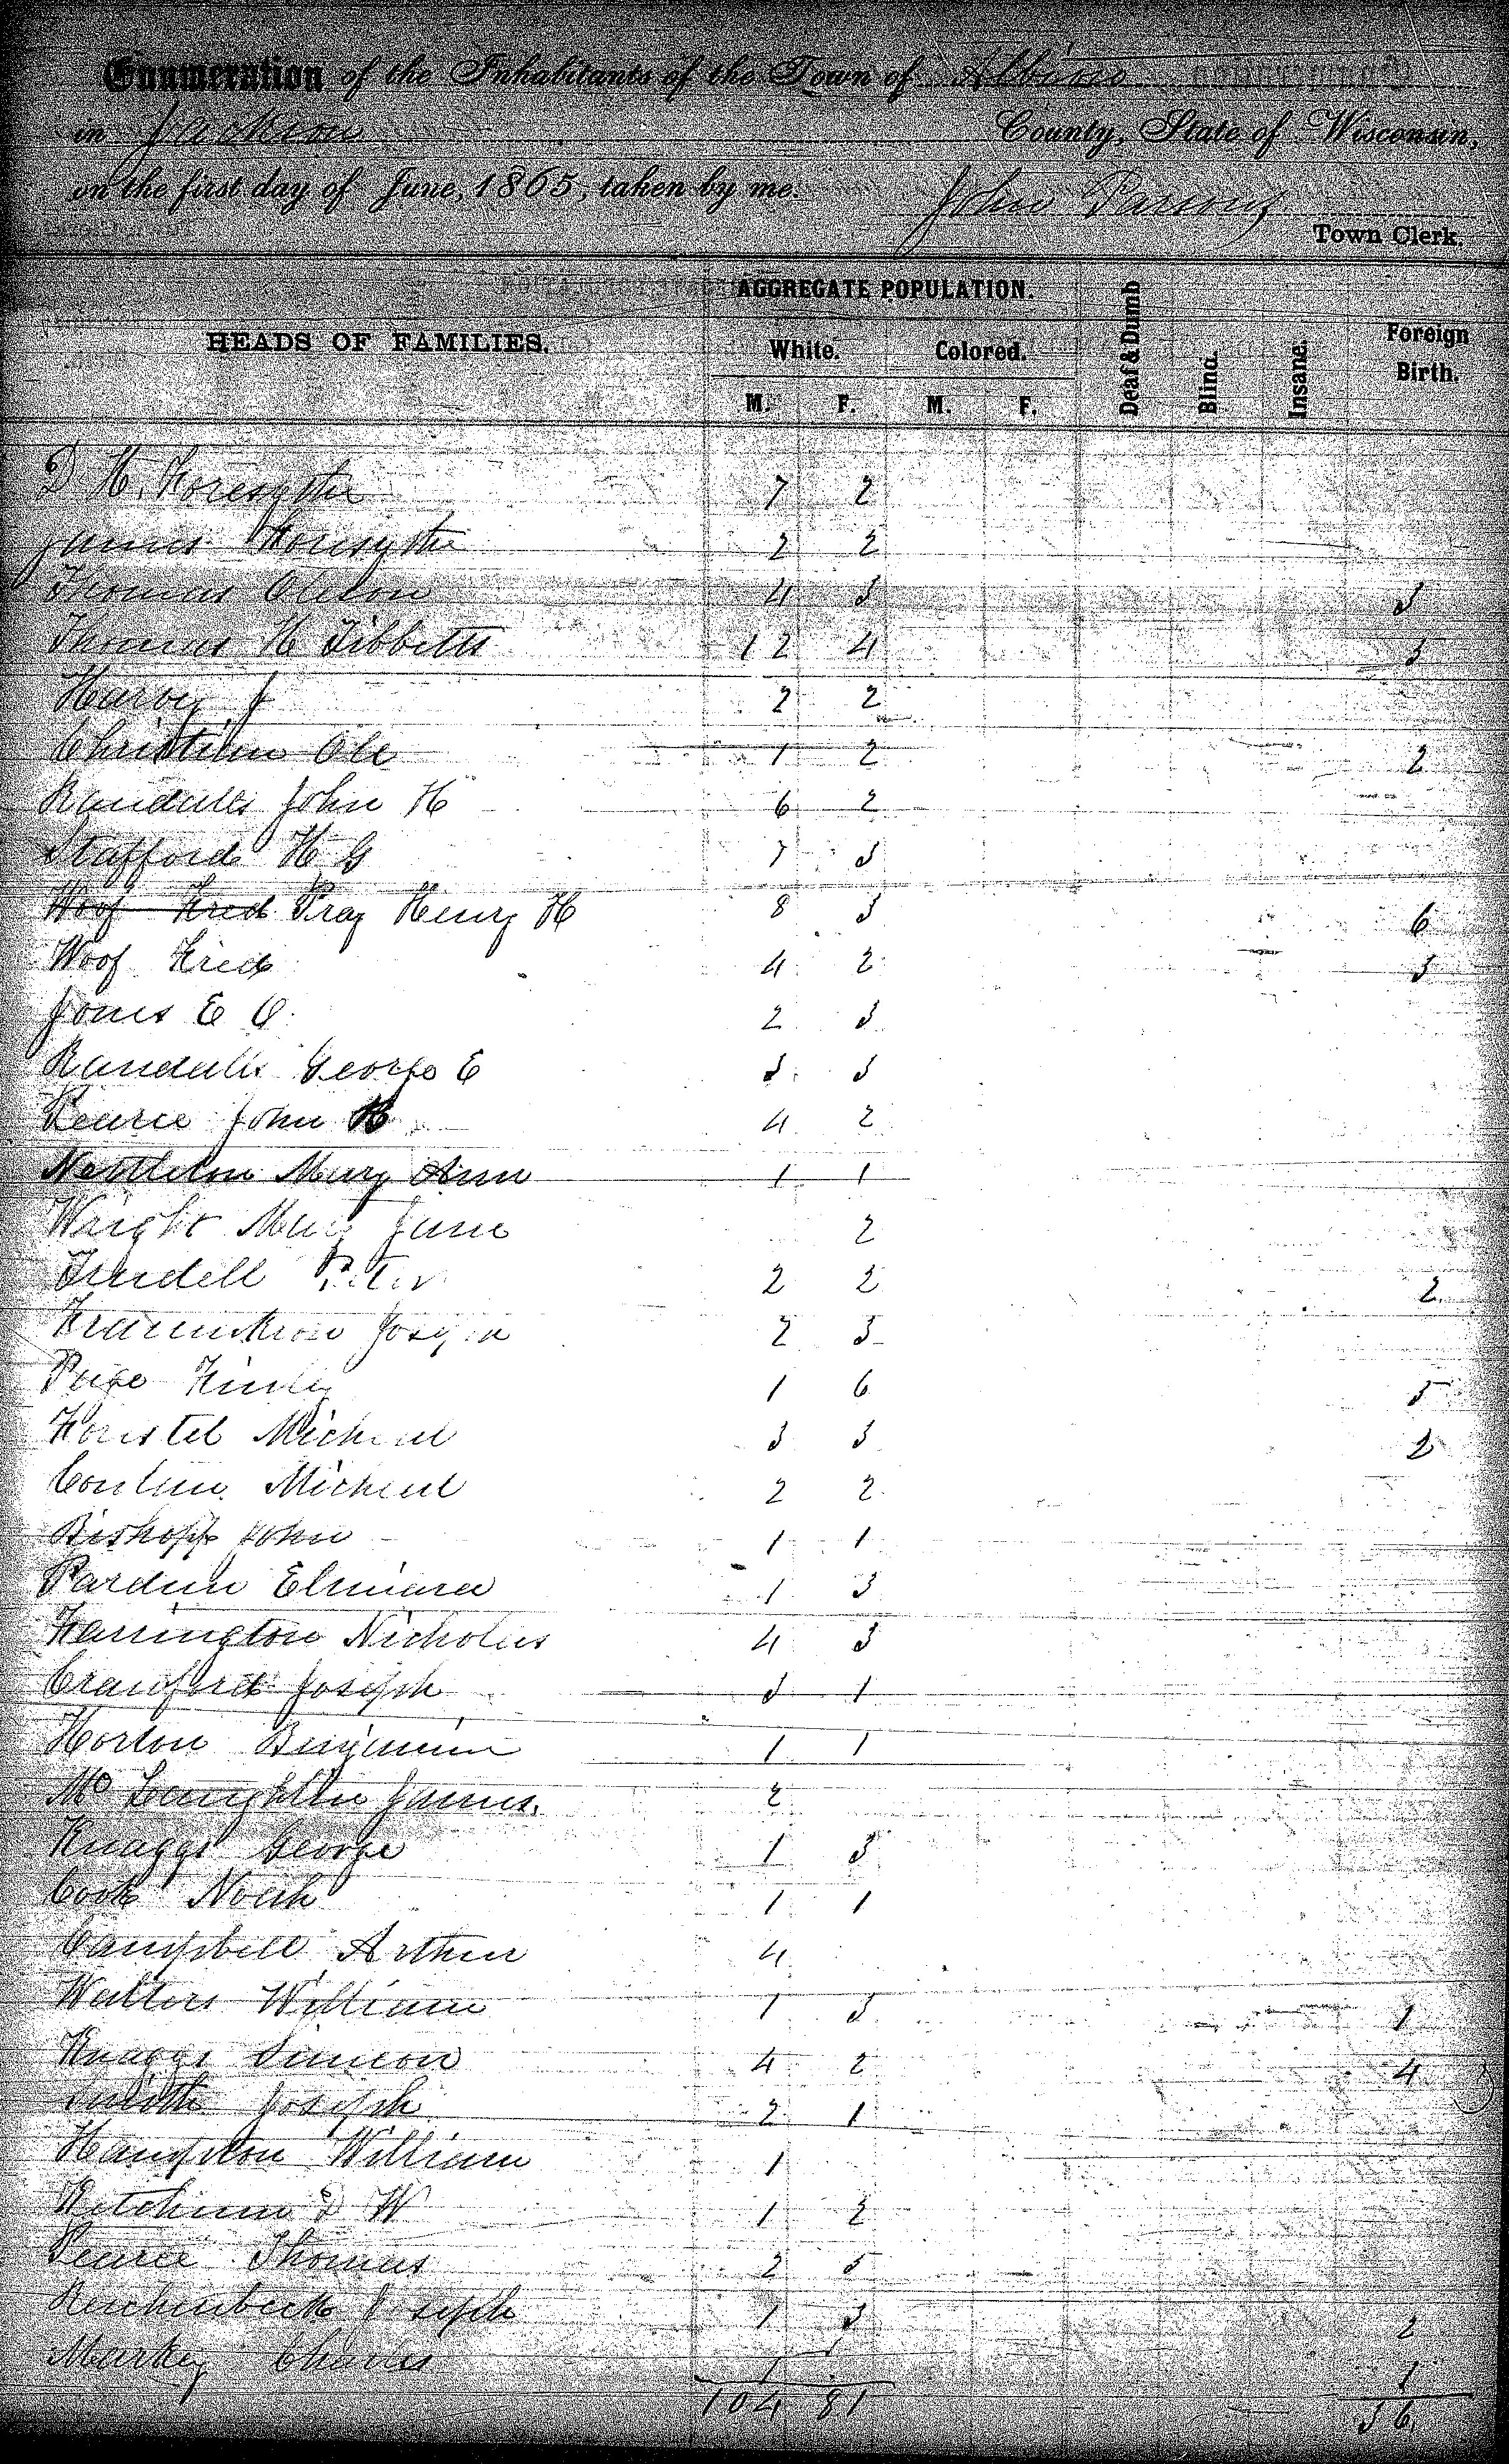 Enumeration of the Inhabitants of the Town of Albion
in Jackson County, State of Wisconsin,
on the first day of June, 1865, taken by me. John Parsons
Town Clerk.
AGGREGATE POPULATION.
HEADS OF FAMILIES. White. Colored. Deaf & Dumb Blind. Insane. Foreign Birth.
M. F. M. F.
D H. Forsythe 7 2
James Forsythe 2 2
Thomas Oleson 4 3 3
Thomas H Tibbetts 12 4 5
Harvey J 2 2
Christian Ole 1 2 2
Randalls John H 6 2
Stafford H G 7 3
Woof Fred Pray Henry H 8 3 6
Woof Fred 4 2 3
Jones E O 2 3
Randalls George E 3 3
Pearce John H 4 2
Nettleton Mary Ann 1 1
Wright Mary Jane 2
Peter 2 2 2
Joseph 2 3
Page Finley 1 6 5
Michael 3 3 2
Michael 2 2
Bishopp John 1 1
Pardun Elmiara 1 3
Farrington Nicholas 4 3
Crawford Joseph 3 1
Horton Benjamin 1 1
Mc Laughlin James. 2
Knaggs George 1 3
Cook Noah 1 1
Campbell Arthur 4
Walters William 1 3 1
Knaggs Simeon 4 2 4
Smith Joseph 2 1
Hampton William 1
Ketchum D W 1 2
Pearce Thomas 2 5
Reichenbeck Joseph 1 3 2
Markey Charles 1 1
104 81 36